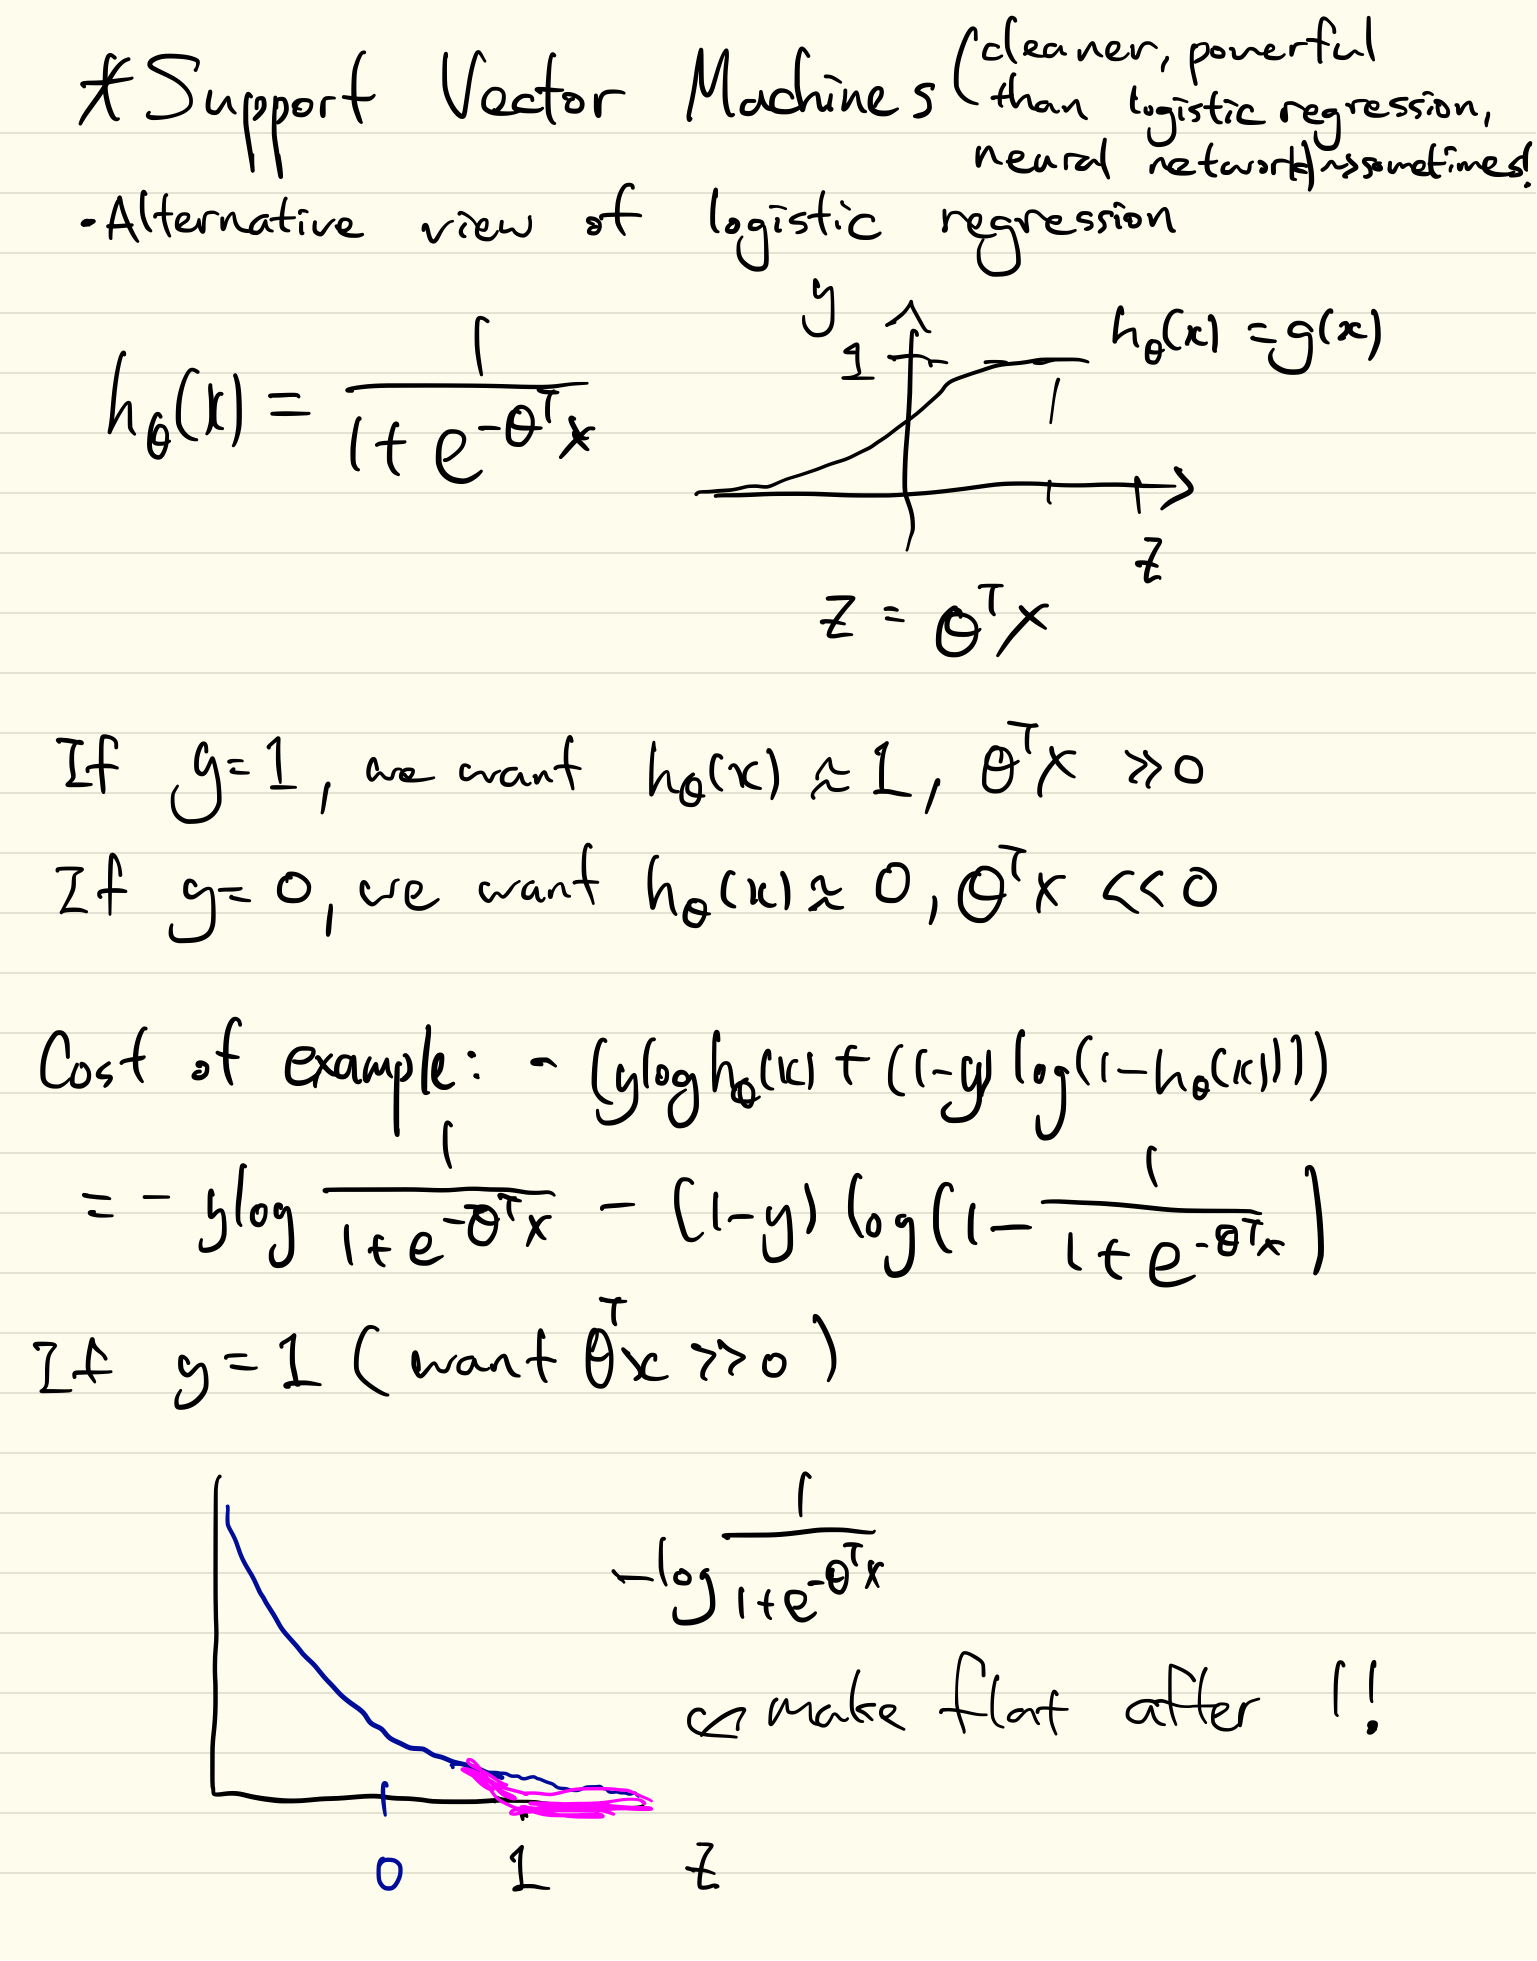 * Support Vector Machines (cleaner, powerful
than logistic regression,
neural network) ~> sometimes!
• Alternative view of logistic regression
y
1
h_θ(x) = g(x)
h_θ(x) = 1 / (1 + e^(-θ^T x))
z
z = θ^T x
If y=1, we want h_θ(x) ≈ 1, θ^T x ≫ 0
If y=0, we want h_θ(x) ≈ 0, θ^T x << 0
Cost of example: - (y log h_θ(x) + ((1-y) log(1-h_θ(x))))
= - y log 1 / (1 + e^(-θ^T x)) - (1-y) log(1 - 1 / (1 + e^(-θ^T x)))
If y=1 (want θ^T x >> 0)
-log 1 / (1 + e^(-θ^T x))
make flat after !!
0 1 z